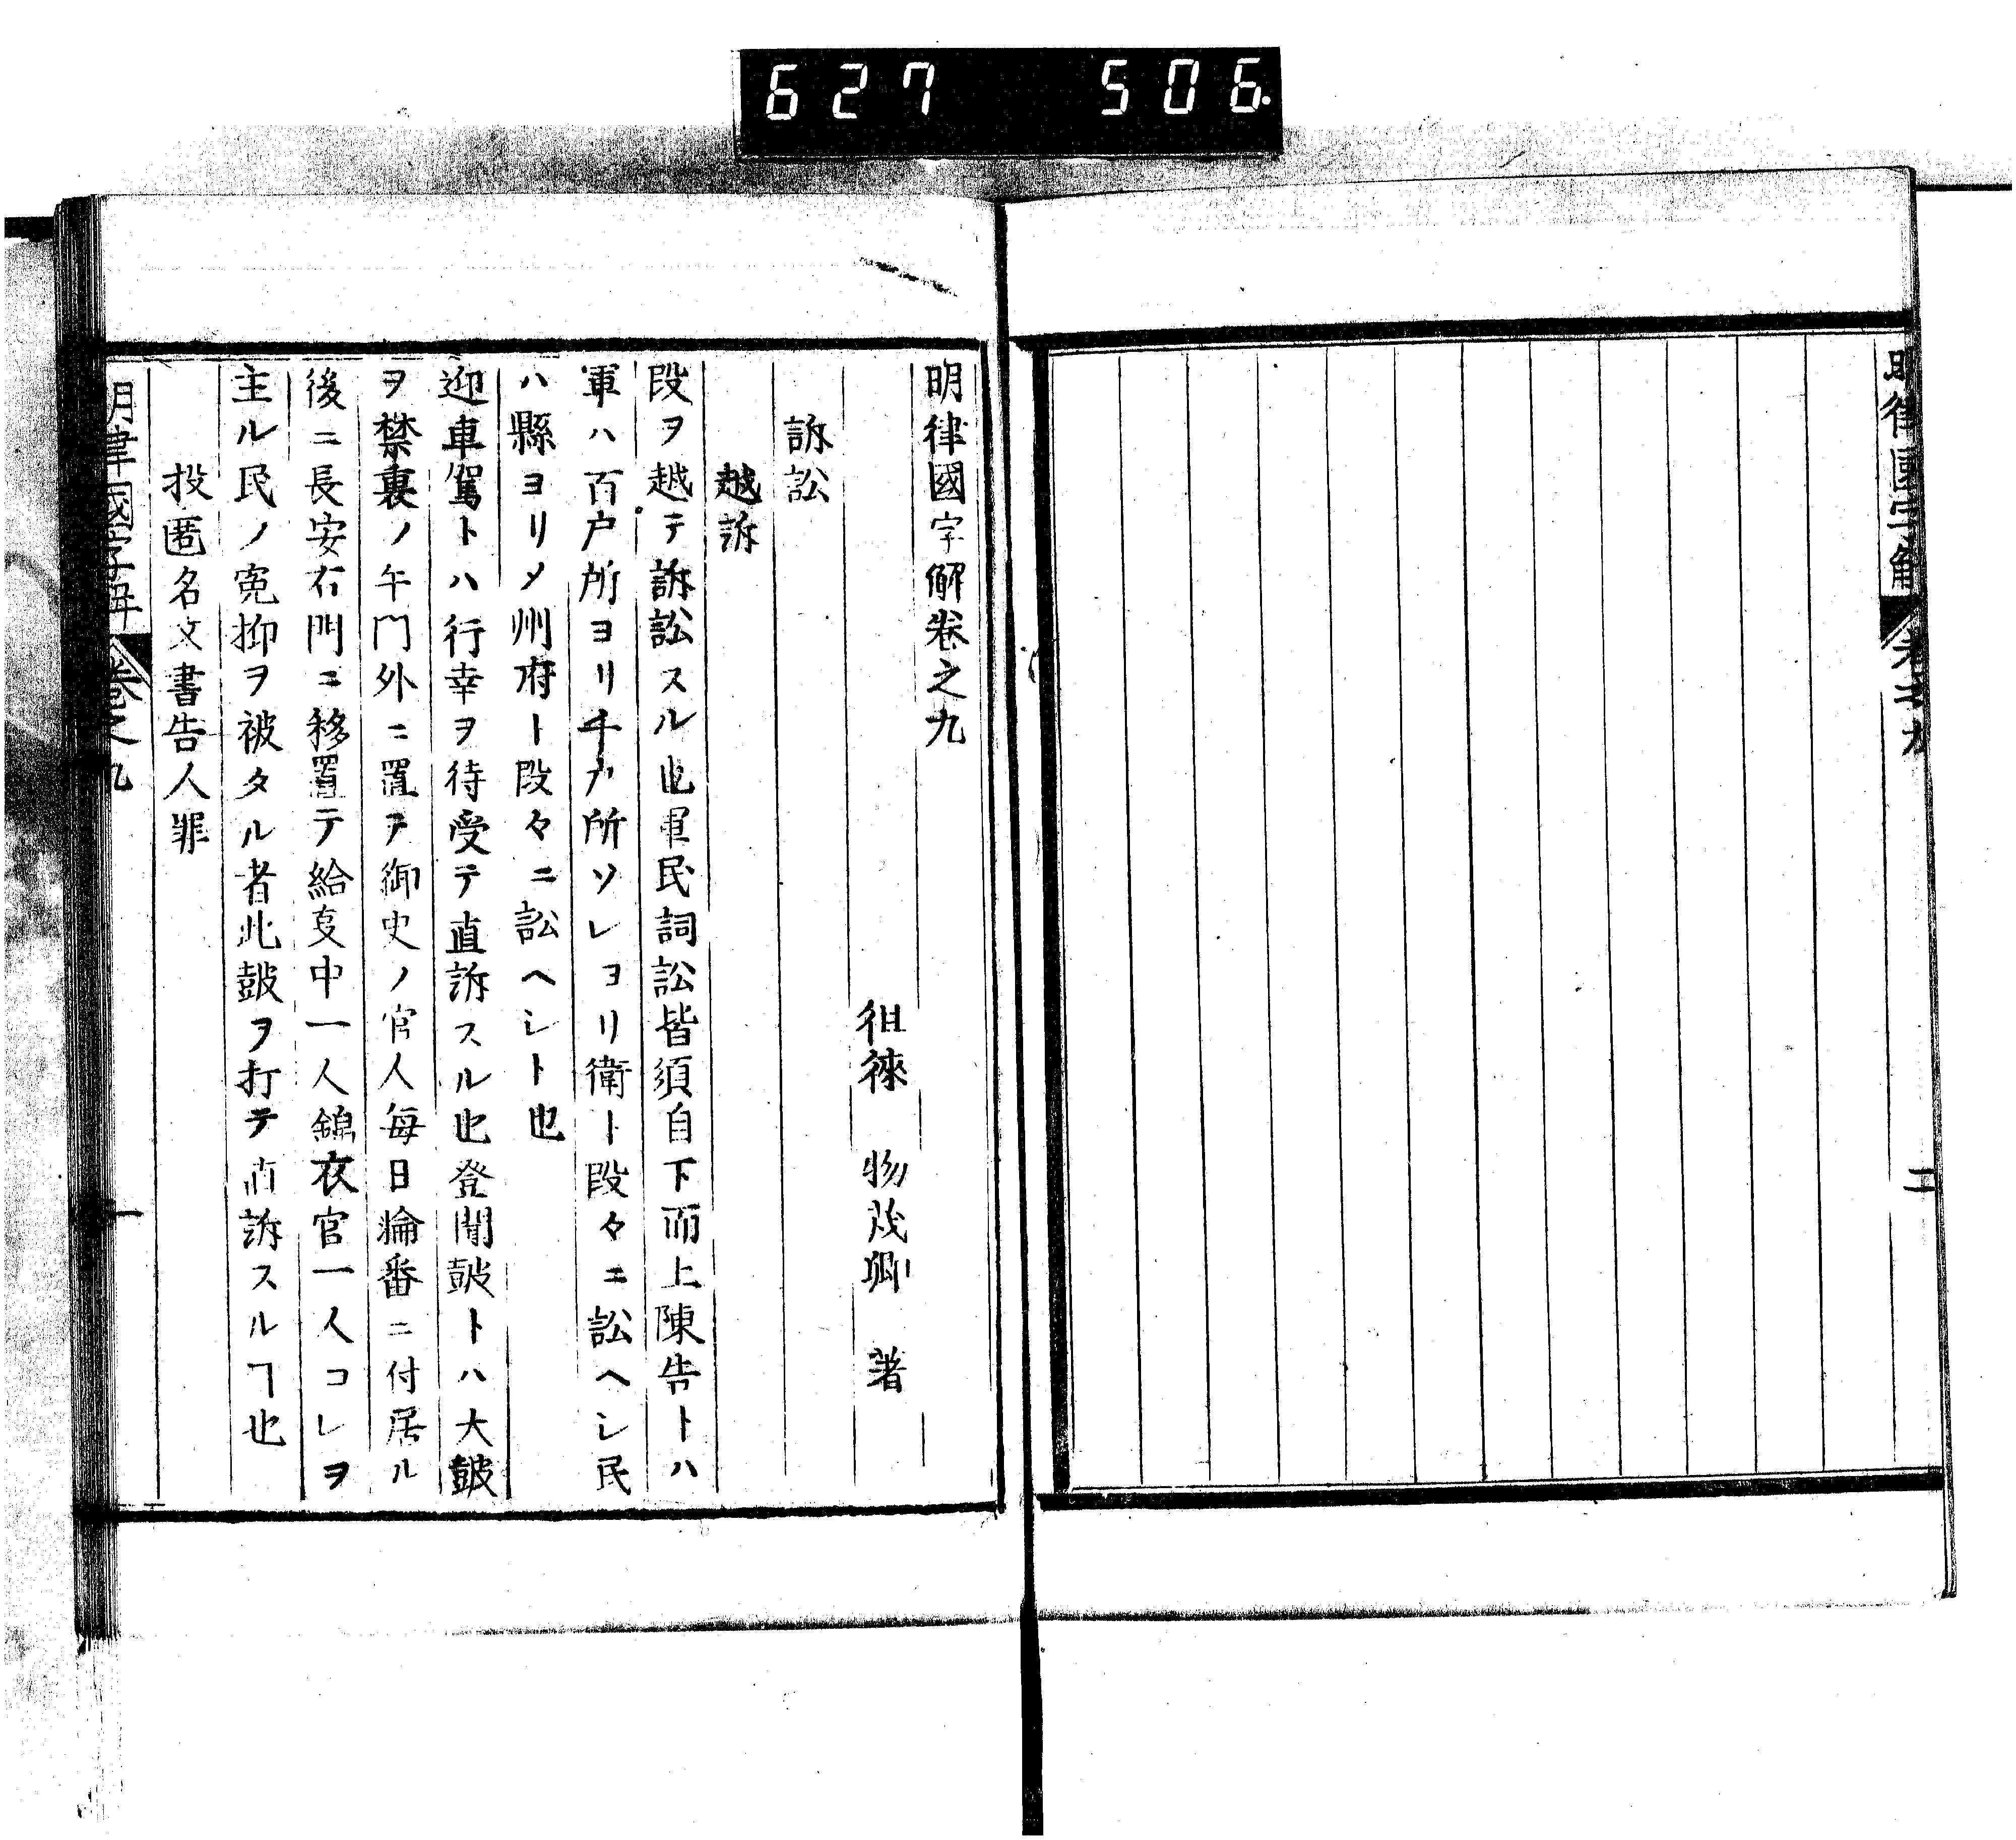 627 506
明律國字解 卷之九
二
明律國字解卷之九
徂徠 物茂卿 著
訴訟
越訴
段ヲ越テ訴訟スル也軍民詞訟皆須自下而上陳告トハ
軍ハ百户所ヨリ千户所ソレヨリ衛ト段々ニ訟ヘシ民
ハ縣ヨリメ州府ト段々ニ訟ヘシト也
迎車駕トハ行幸ヲ待受テ直訴スル也登聞皷トハ大皷
ヲ禁裏ノ午門外ニ置テ御史ノ官人毎日輪番ニ付居ル
後ニ長安右門ニ移置テ給叓中一人錦衣官一人コレヲ
主ル民ノ寃抑ヲ被タル者此皷ヲ打テ直訴スルヿ也
投匿名文書告人罪
明律國字解 卷之九
一